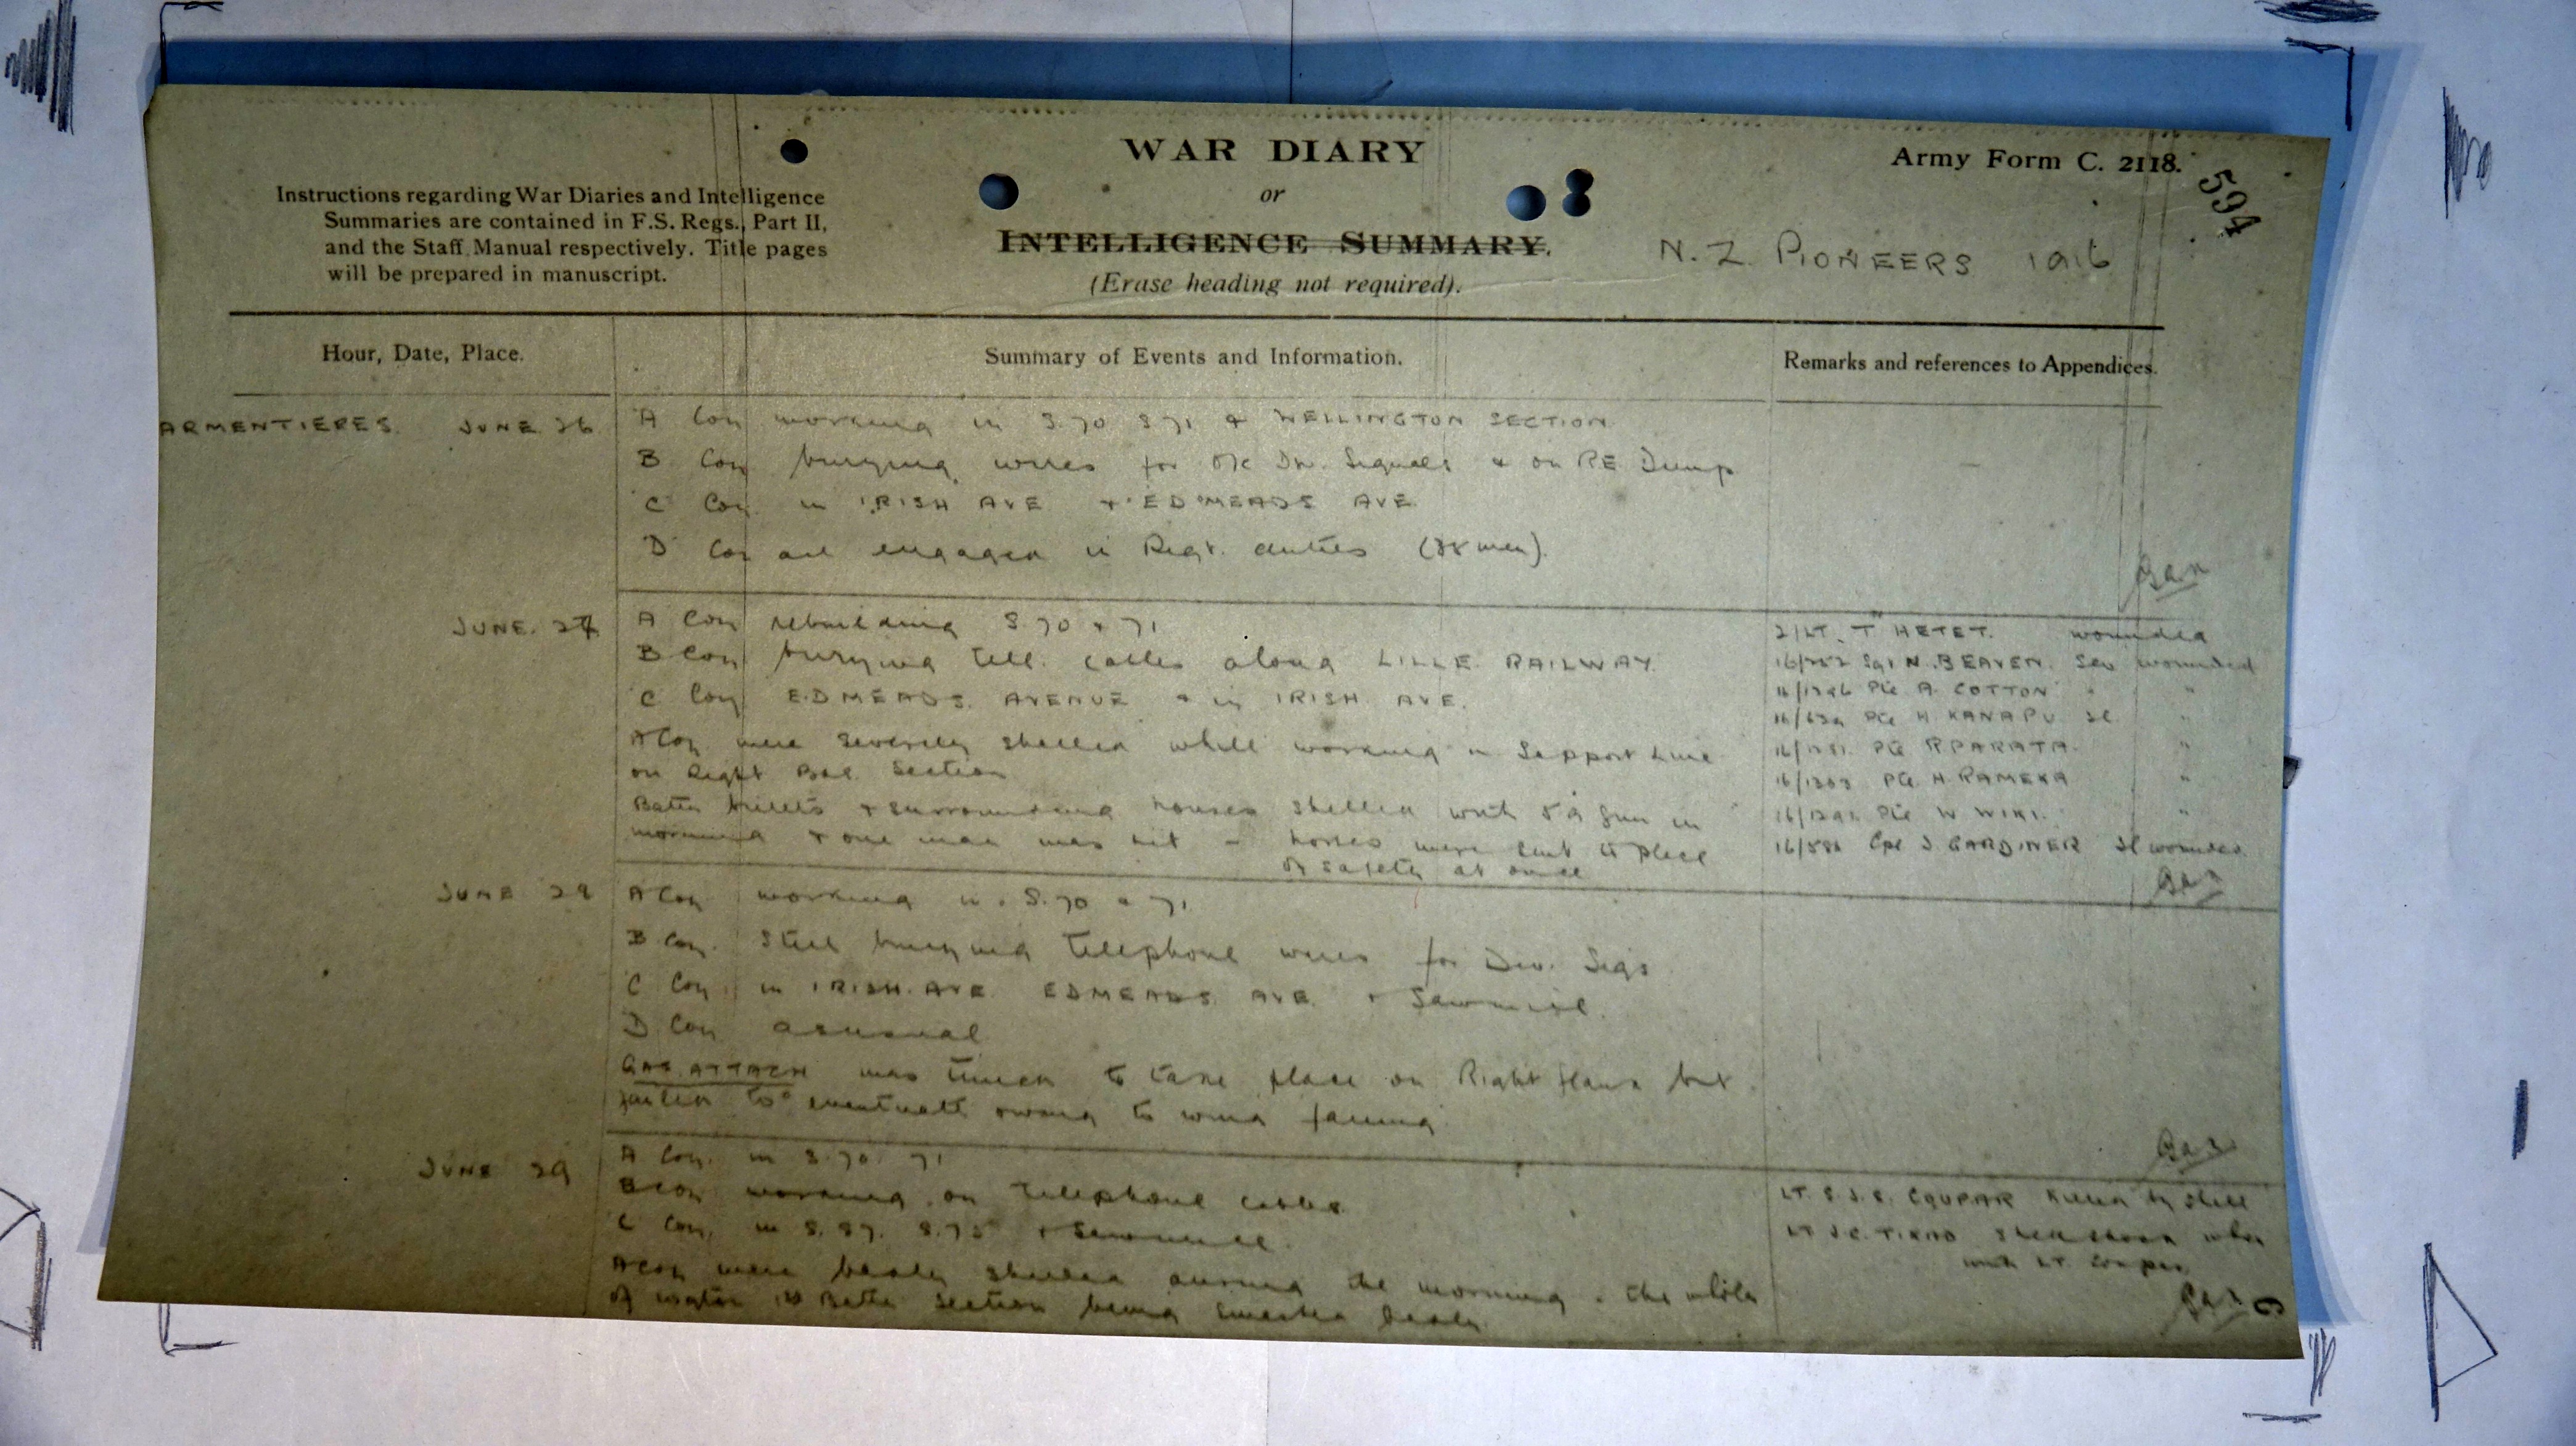 WAR DIARY
or
INTELLIGENCE SUMMARY.
(Erase heading not required).
Army Form C. 2118.
594
Instructions regarding War Diaries and Intelligence
Summaries are contained in F.S. Regs., Part II,
and the Staff Manual respectively. Title pages
will be prepared in manuscript.
N. Z. PIONEERS 1916
Hour, Date, Place.
Summary of Events and Information.
Remarks and references to Appendices.
ARMENTIERES JUNE 26
A Coy working in S.70 S 71 & WELLINGTON SECTION.
B Coy burying wires for O/c Div. Signals & on RE Dump
C Coy in IRISH AVE & EDMEADS AVE
D Coy are engaged in Regt. duties (88 men).
JUNE. 27
A Coy rebuilding S 70 & 71
B Coy burying tele. cables along LILLE RAILWAY.
C Coy EDMEADS AVENUE & in IRISH AVE.
A Coy were severely shelled while working in Support Line
on Right Section
Battn billets & surrounding houses shelled with 5.9 gun in
morning & one man was hit - horses were sent to place
of safety at once
2/LT. T HETET. wounded
Sgt N. BEAVEN. Sev wounded
Pte A. COTTON " "
Pte H. KANAPU Sl. "
Pte P PARATA. "
Pte H. RAMEKA "
Pte W WIKI. "
Cpl J GARDINER Sl wounded
JUNE 28
A Coy working in S.70 & 71
B Coy. Still burying telephone wires for Div. Sigs
C Coy in IRISH AVE EDMEADS AVE & Sawmill.
D Coy as usual
GAS ATTACK was timed to take place on Right flank but
failed to eventuate owing to wind failing
JUNE 29
A Coy. in S.70. 71
B Coy working on telephone cables.
C Coy, in S. 87. S.75 & Sawmill.
A Coy were badly shelled during the morning. the whole
of Battn Section being smashed badly.
LT. S. J. S. COUPAR Killed by shell
LT J.C. TIKAO Shell shock when
with LT. Coupar